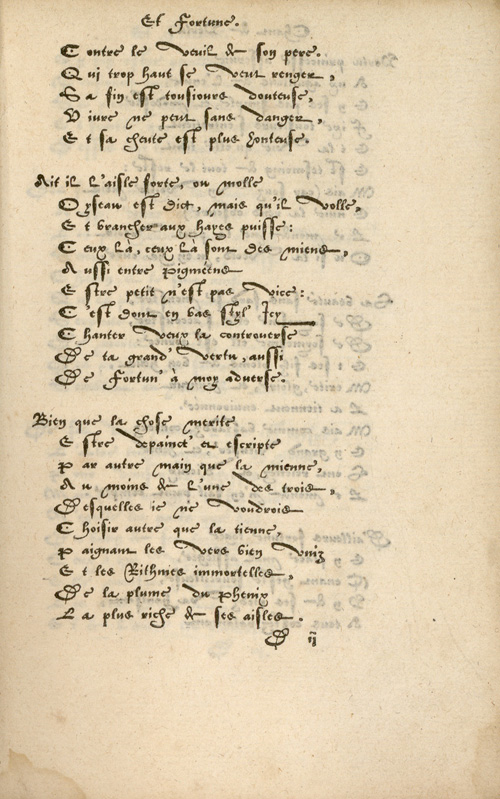 Et Fortune.
Contre le vueil de son pere.
Qui trop haut se veut renger,
Sa fin est tousiours douteuse,
Viure ne peut sans danger,
Et sa cheute est plus honteuse.
Ait il l'aisle forte, ou molle
Oyseau est dict, mais qu'il volle,
Et brancher aux hayes puisse:
Ceux là, ceux là sont des miens,
Aussi entre Pigméens
Estre petit n'est pas vice:
C'est dont en bas styl' Icy
Chanter veux la controverse
De ta grand' vertu, aussi
De Fortun' à moy adverse.
Bien que la chose merite
Estre depainct' et escripte
Par autre main que la mienne,
Au moins de l'une des trois,
Desquelles ie ne voudrois
Choisir autre que la tienne,
Paignant les vers bien vniz
Et les Rithmes immortelles,
De la plume du Phenix
La plus riche de ses aisles.
D ij